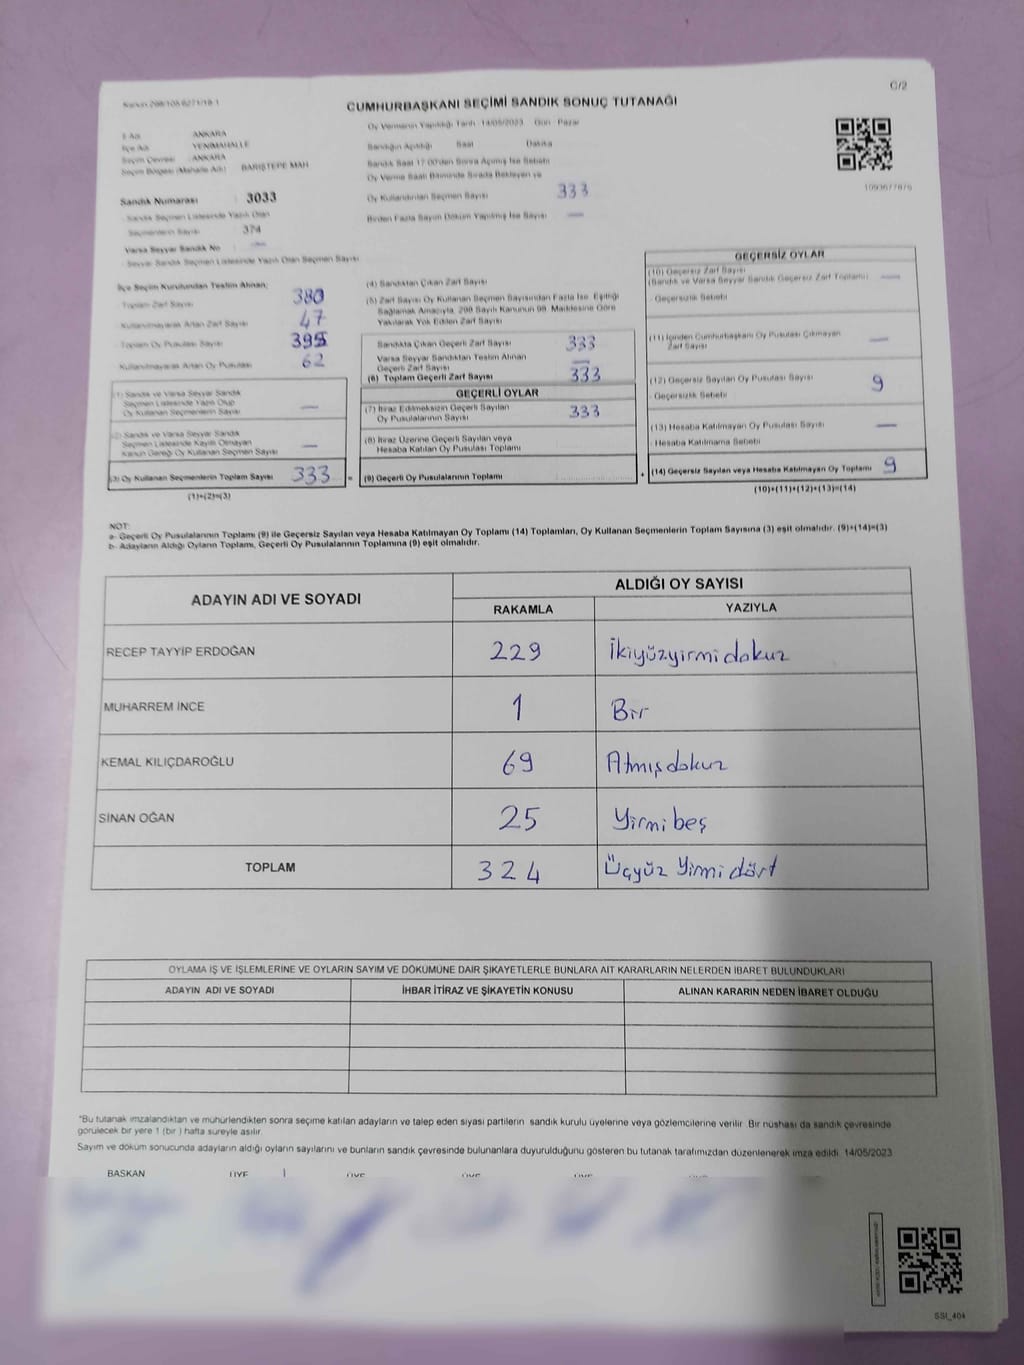 Kanun 298/105 6271/19-1
C/2
CUMHURBAŞKANI SEÇİMİ SANDIK SONUÇ TUTANAĞI
Oy Vermenin Yapıldığı Tarih 14/05/2023 Gün Pazar
İl Adı ANKARA
İlçe Adı YENİMAHALLE
Seçim Çevresi ANKARA
Seçim Bölgesi (Mahalle Adı) BARIŞTEPE MAH
Sandığın Açıldığı Saat Dakika
Sandık Saat 17.00'den Sonra Açılmış İse Sebebi
Oy Verme Saati Bitiminde Sırada Bekleyen ve
Oy Kullandırılan Seçmen Sayısı 333
Birden Fazla Sayım Döküm Yapılmış İse Sayısı —
Sandık Numarası : 3033
- Sandık Seçmen Listesinde Yazılı Olan
Seçmenlerin Sayısı 374
Varsa Seyyar Sandık No —
- Seyyar Sandık Seçmen Listesinde Yazılı Olan Seçmen Sayısı
İlçe Seçim Kurulundan Teslim Alınan;
- Toplam Zarf Sayısı 380
- Kullanılmayarak Artan Zarf Sayısı 47
- Toplam Oy Pusulası Sayısı 395
- Kullanılmayarak Artan Oy Pusulası 62
(1) Sandık ve Varsa Seyyar Sandık
Seçmen Listesinde Yazılı Olup
Oy Kullanan Seçmenlerin Sayısı —
(2) Sandık ve Varsa Seyyar Sandık
Seçmen Listesinde Kayıtlı Olmayan
Kanun Gereği Oy Kullanan Seçmen Sayısı —
(3) Oy Kullanan Seçmenlerin Toplam Sayısı 333 =
(1)+(2)=(3)
(4) Sandıktan Çıkan Zarf Sayısı
(5) Zarf Sayısı Oy Kullanan Seçmen Sayısından Fazla İse, Eşitliği
Sağlamak Amacıyla, 298 Sayılı Kanunun 98. Maddesine Göre
Yakılarak Yok Edilen Zarf Sayısı
Sandıkta Çıkan Geçerli Zarf Sayısı 333
Varsa Seyyar Sandıktan Teslim Alınan
Geçerli Zarf Sayısı —
(6) Toplam Geçerli Zarf Sayısı 333
GEÇERLİ OYLAR
(7) İtiraz Edilmeksizin Geçerli Sayılan
Oy Pusulalarının Sayısı 333
(8) İtiraz Üzerine Geçerli Sayılan veya
Hesaba Katılan Oy Pusulası Toplamı
(9) Geçerli Oy Pusulalarının Toplamı +
GEÇERSİZ OYLAR
(10) Geçersiz Zarf Sayısı
(Sandık ve Varsa Seyyar Sandık Geçersiz Zarf Toplamı) —
- Geçersizlik Sebebi
(11) İçinden Cumhurbaşkanı Oy Pusulası Çıkmayan
Zarf Sayısı —
(12) Geçersiz Sayılan Oy Pusulası Sayısı 9
- Geçersizlik Sebebi
(13) Hesaba Katılmayan Oy Pusulası Sayısı —
- Hesaba Katılmama Sebebi
(14) Geçersiz Sayılan veya Hesaba Katılmayan Oy Toplamı 9
(10)+(11)+(12)+(13)=(14)
NOT:
a- Geçerli Oy Pusulalarının Toplamı (9) ile Geçersiz Sayılan veya Hesaba Katılmayan Oy Toplamı (14) Toplamları, Oy Kullanan Seçmenlerin Toplam Sayısına (3) eşit olmalıdır. (9)+(14)=(3)
b- Adayların Aldığı Oyların Toplamı, Geçerli Oy Pusulalarının Toplamına (9) eşit olmalıdır.
ADAYIN ADI VE SOYADI
ALDIĞI OY SAYISI
RAKAMLA YAZIYLA
RECEP TAYYİP ERDOĞAN 229 İkiyüzyirmidokuz
MUHARREM İNCE 1 Bir
KEMAL KILIÇDAROĞLU 69 Atmışdokuz
SİNAN OĞAN 25 Yirmibeş
TOPLAM 324 Üçyüz Yirmidört
OYLAMA İŞ VE İŞLEMLERİNE VE OYLARIN SAYIM VE DÖKÜMÜNE DAİR ŞİKAYETLERLE BUNLARA AİT KARARLARIN NELERDEN İBARET BULUNDUKLARI
ADAYIN ADI VE SOYADI İHBAR İTİRAZ VE ŞİKAYETİN KONUSU ALINAN KARARIN NEDEN İBARET OLDUĞU
*Bu tutanak imzalandıktan ve mühürlendikten sonra seçime katılan adayların ve talep eden siyasi partilerin sandık kurulu üyelerine veya gözlemcilerine verilir. Bir nüshası da sandık çevresinde
görülecek bir yere 1 (bir) hafta süreyle asılır.
Sayım ve döküm sonucunda adayların aldığı oyların sayılarını ve bunların sandık çevresinde bulunanlara duyurulduğunu gösteren bu tutanak tarafımızdan düzenlenerek imza edildi. 14/05/2023
BAŞKAN ÜYE ÜYE ÜYE ÜYE ÜYE
SSİ_404